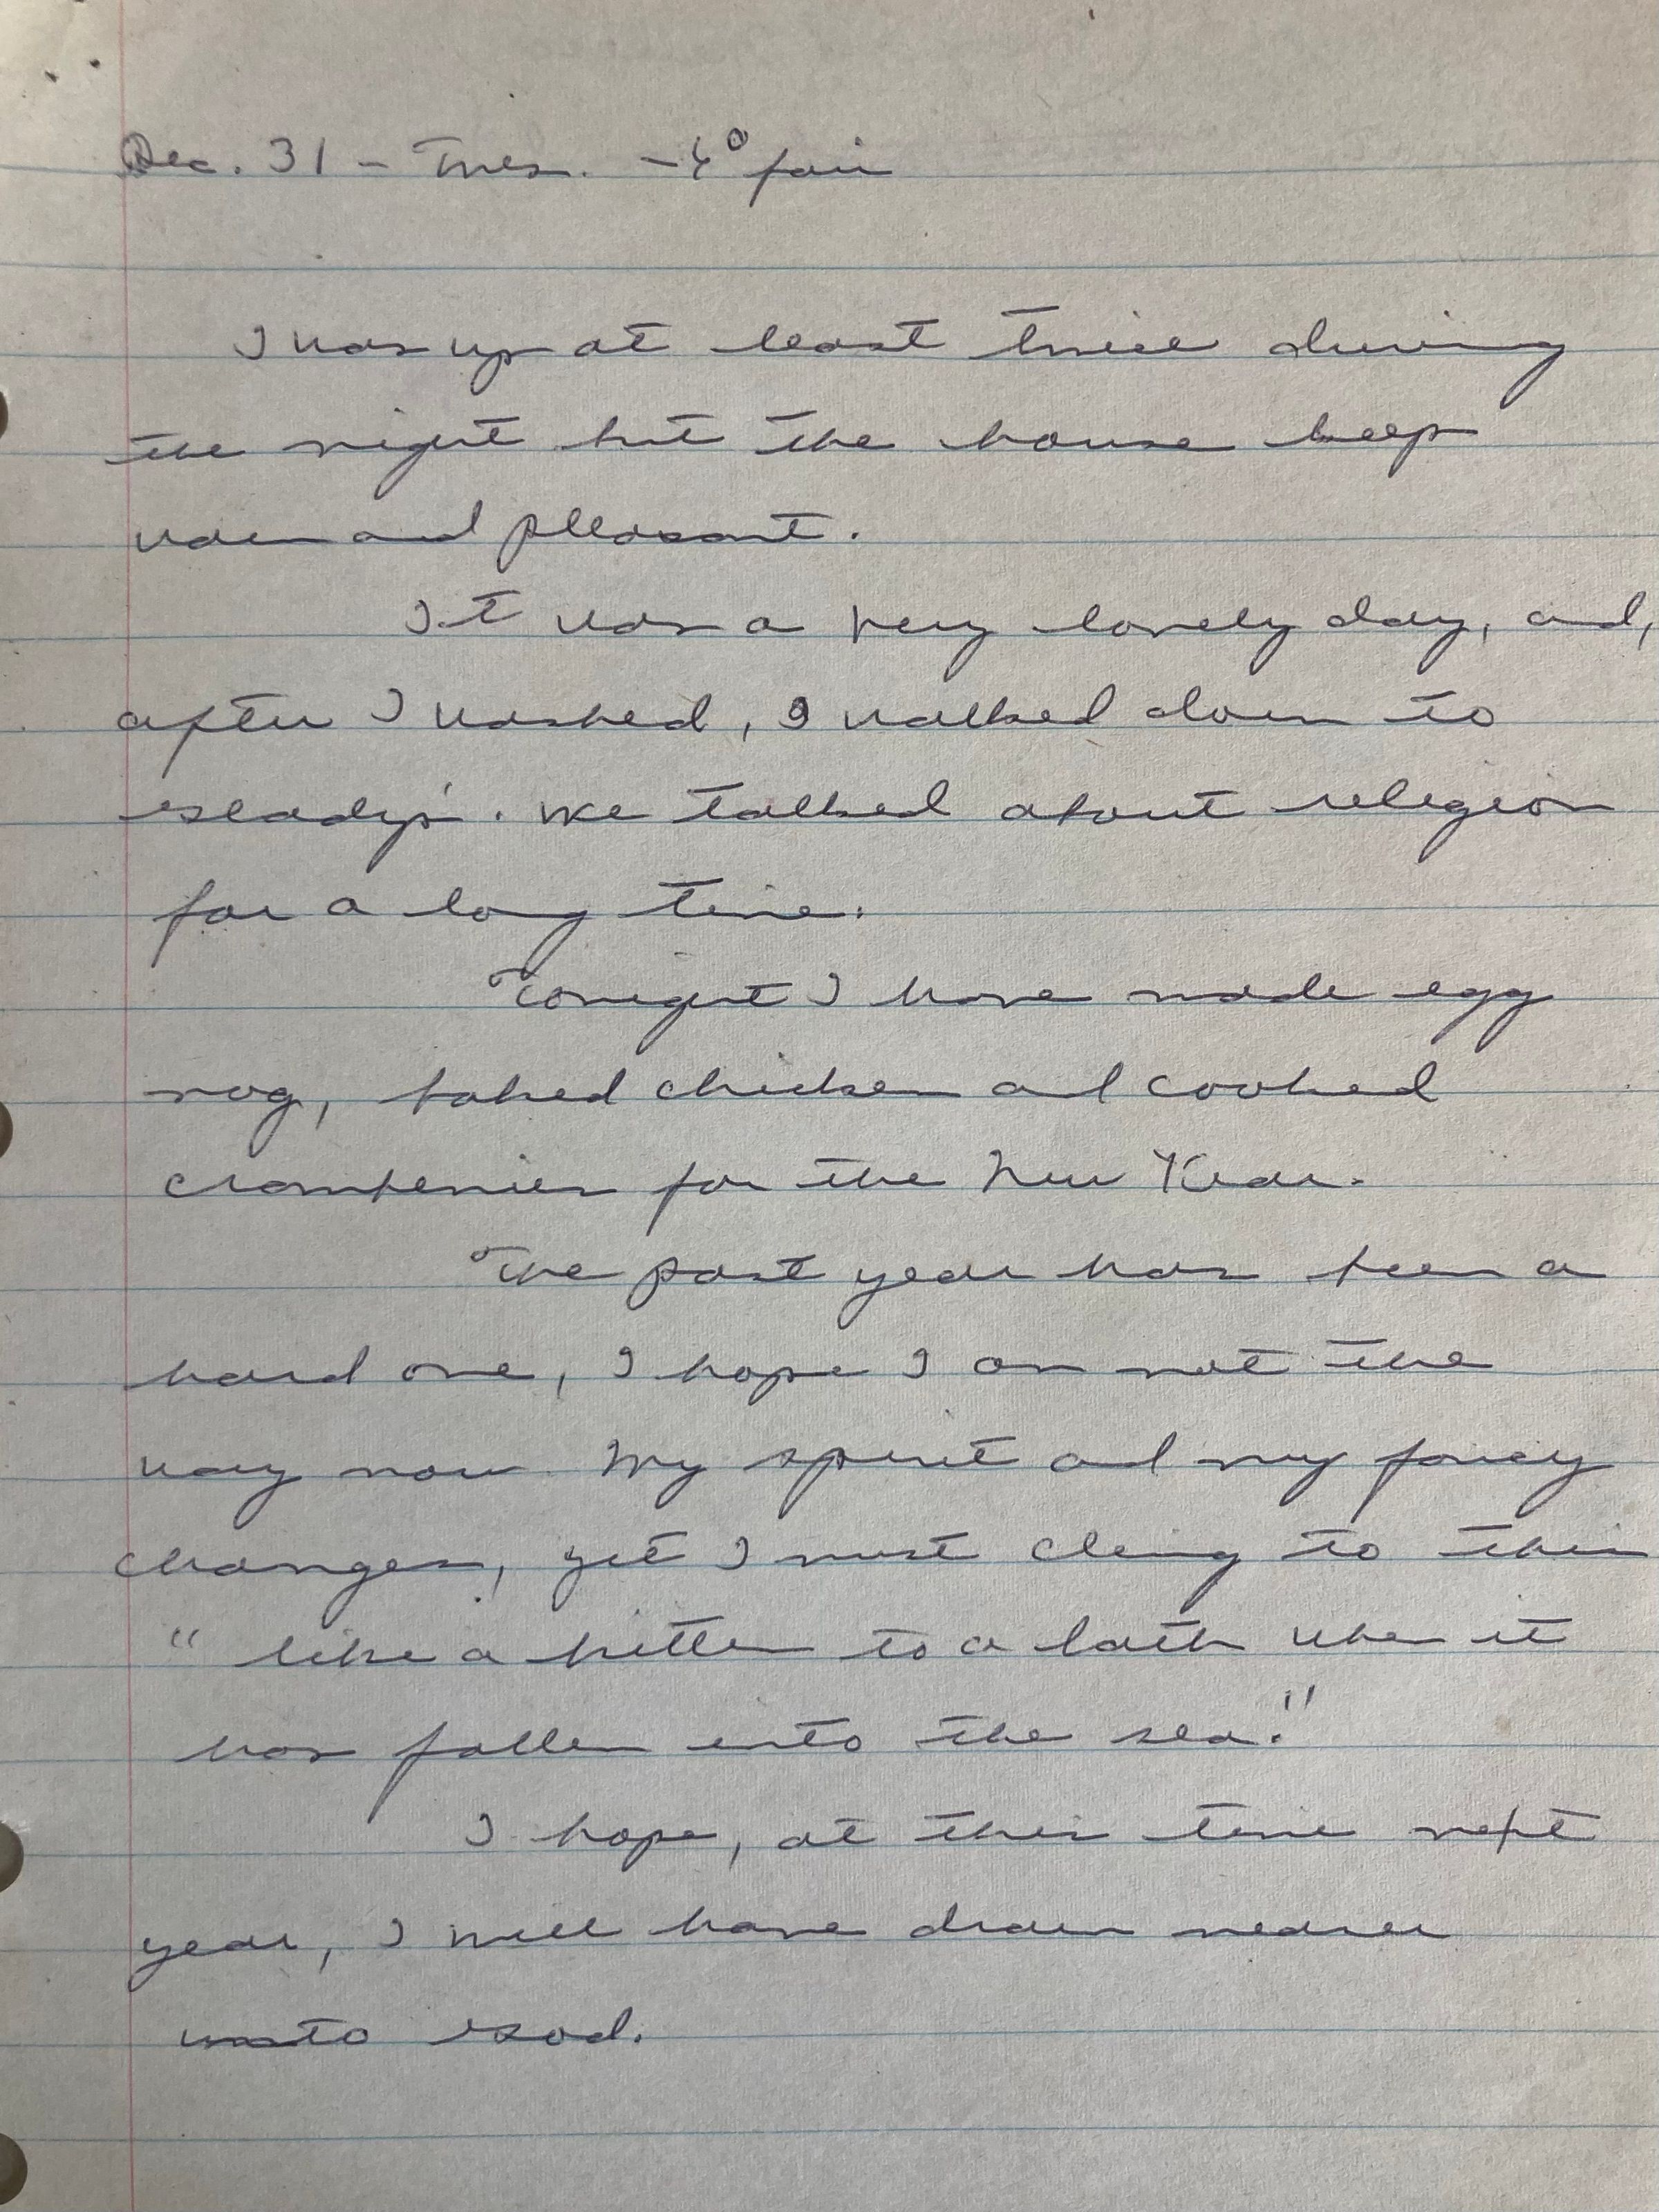 Dec. 31 - Tues. -4° fair
I was up at least twice during
the night but the house keep
warm and pleasant.
It was a very lovely day, and,
after I washed, I walked down to
Gladys'. We talked about religion
for a long time.
Tonight I have made egg
nog, baked chicken and cooked
cranberries for the New Year.
The past year has been a
hard one, I hope I am not the
way now. My spirit and my fancy
changes, yet I must cling to this
" like a kitten to a lath when it
has fallen into the sea."
I hope, at this time next
year, I will have drawn nearer
unto God.